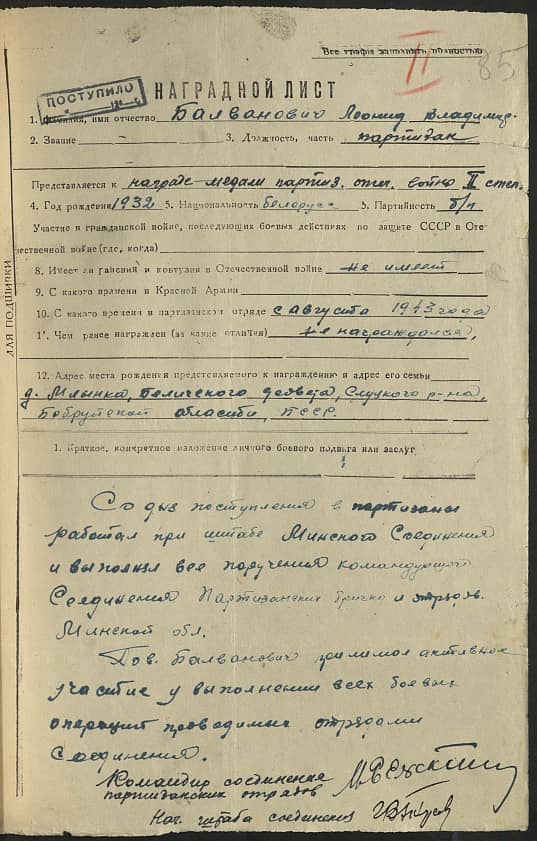 Все графы заполнять полностью
II
85
ПОСТУПИЛО
НАГРАДНОЙ ЛИСТ
1. Фамилия, имя отчество Балванович Леонид Владимир.
2. Звание — 3. Должность, часть партизан
Представляется к награде-медали партиз. отеч. войны II степ.
4. Год рождения 1932 5. Национальность белорусс 5. Партийность б/п
Участие в гражданской войне, последующих боевых действиях по защите СССР в Оте-
чественной войне (где, когда)
8. Имеет ли ранения и контузии в Отечественной войне не имеет
9. С какого времени в Красной Армии
10. С какого времени в партизанском отряде с августа 1943 года
11. Чем ранее награжден (за какие отличия) не награждался,
12. Адрес места рождения представляемого к награждению и адрес его семьи
д. Млынка, Беличского совета, Слуцкого р-на,
Бобруйской области, БССР.
1. Краткое, конкретное изложение личного боевого подвига или заслуг
ДЛЯ ПОДШИВКИ
Со дня поступления в партизаны
работал при штабе Минского Соединения
и выполнял все поручения командующего
Соединения Партизанских бригад и отрядов
Минской обл.
Тов. Балванович принимал активное
участие у выполнении всех боевых
операций проводимых отрядами
Соединения.
Командир соединения
партизанских отрядов
Нач. штаба соединения